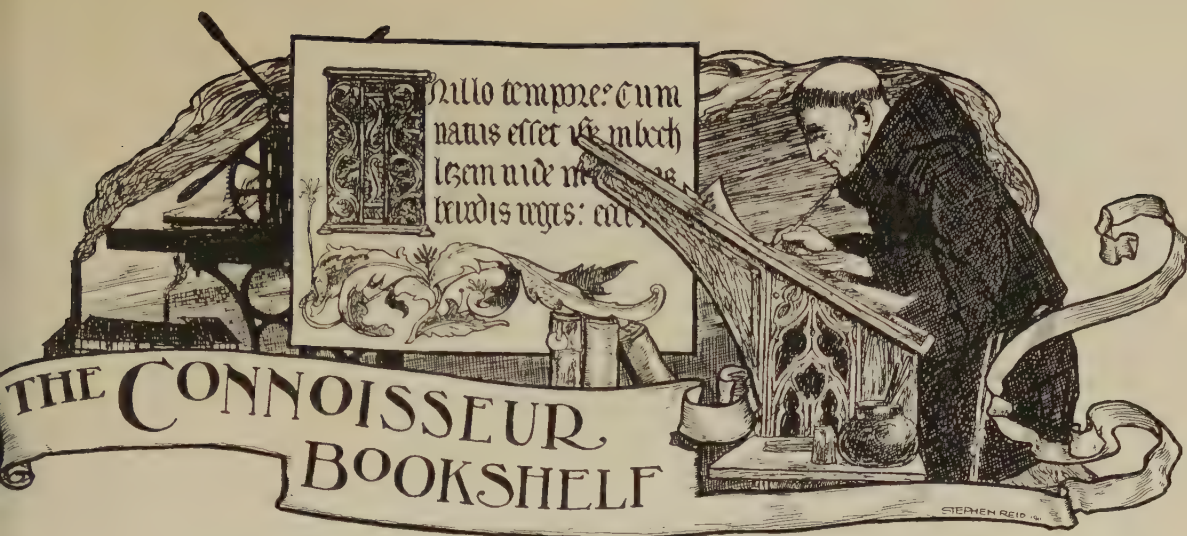 In illo tempore: Cum
natus esset ihs in beth
leem iude
regis: ecce
THE CONNOISSEUR
BOOKSHELF
STEPHEN REID